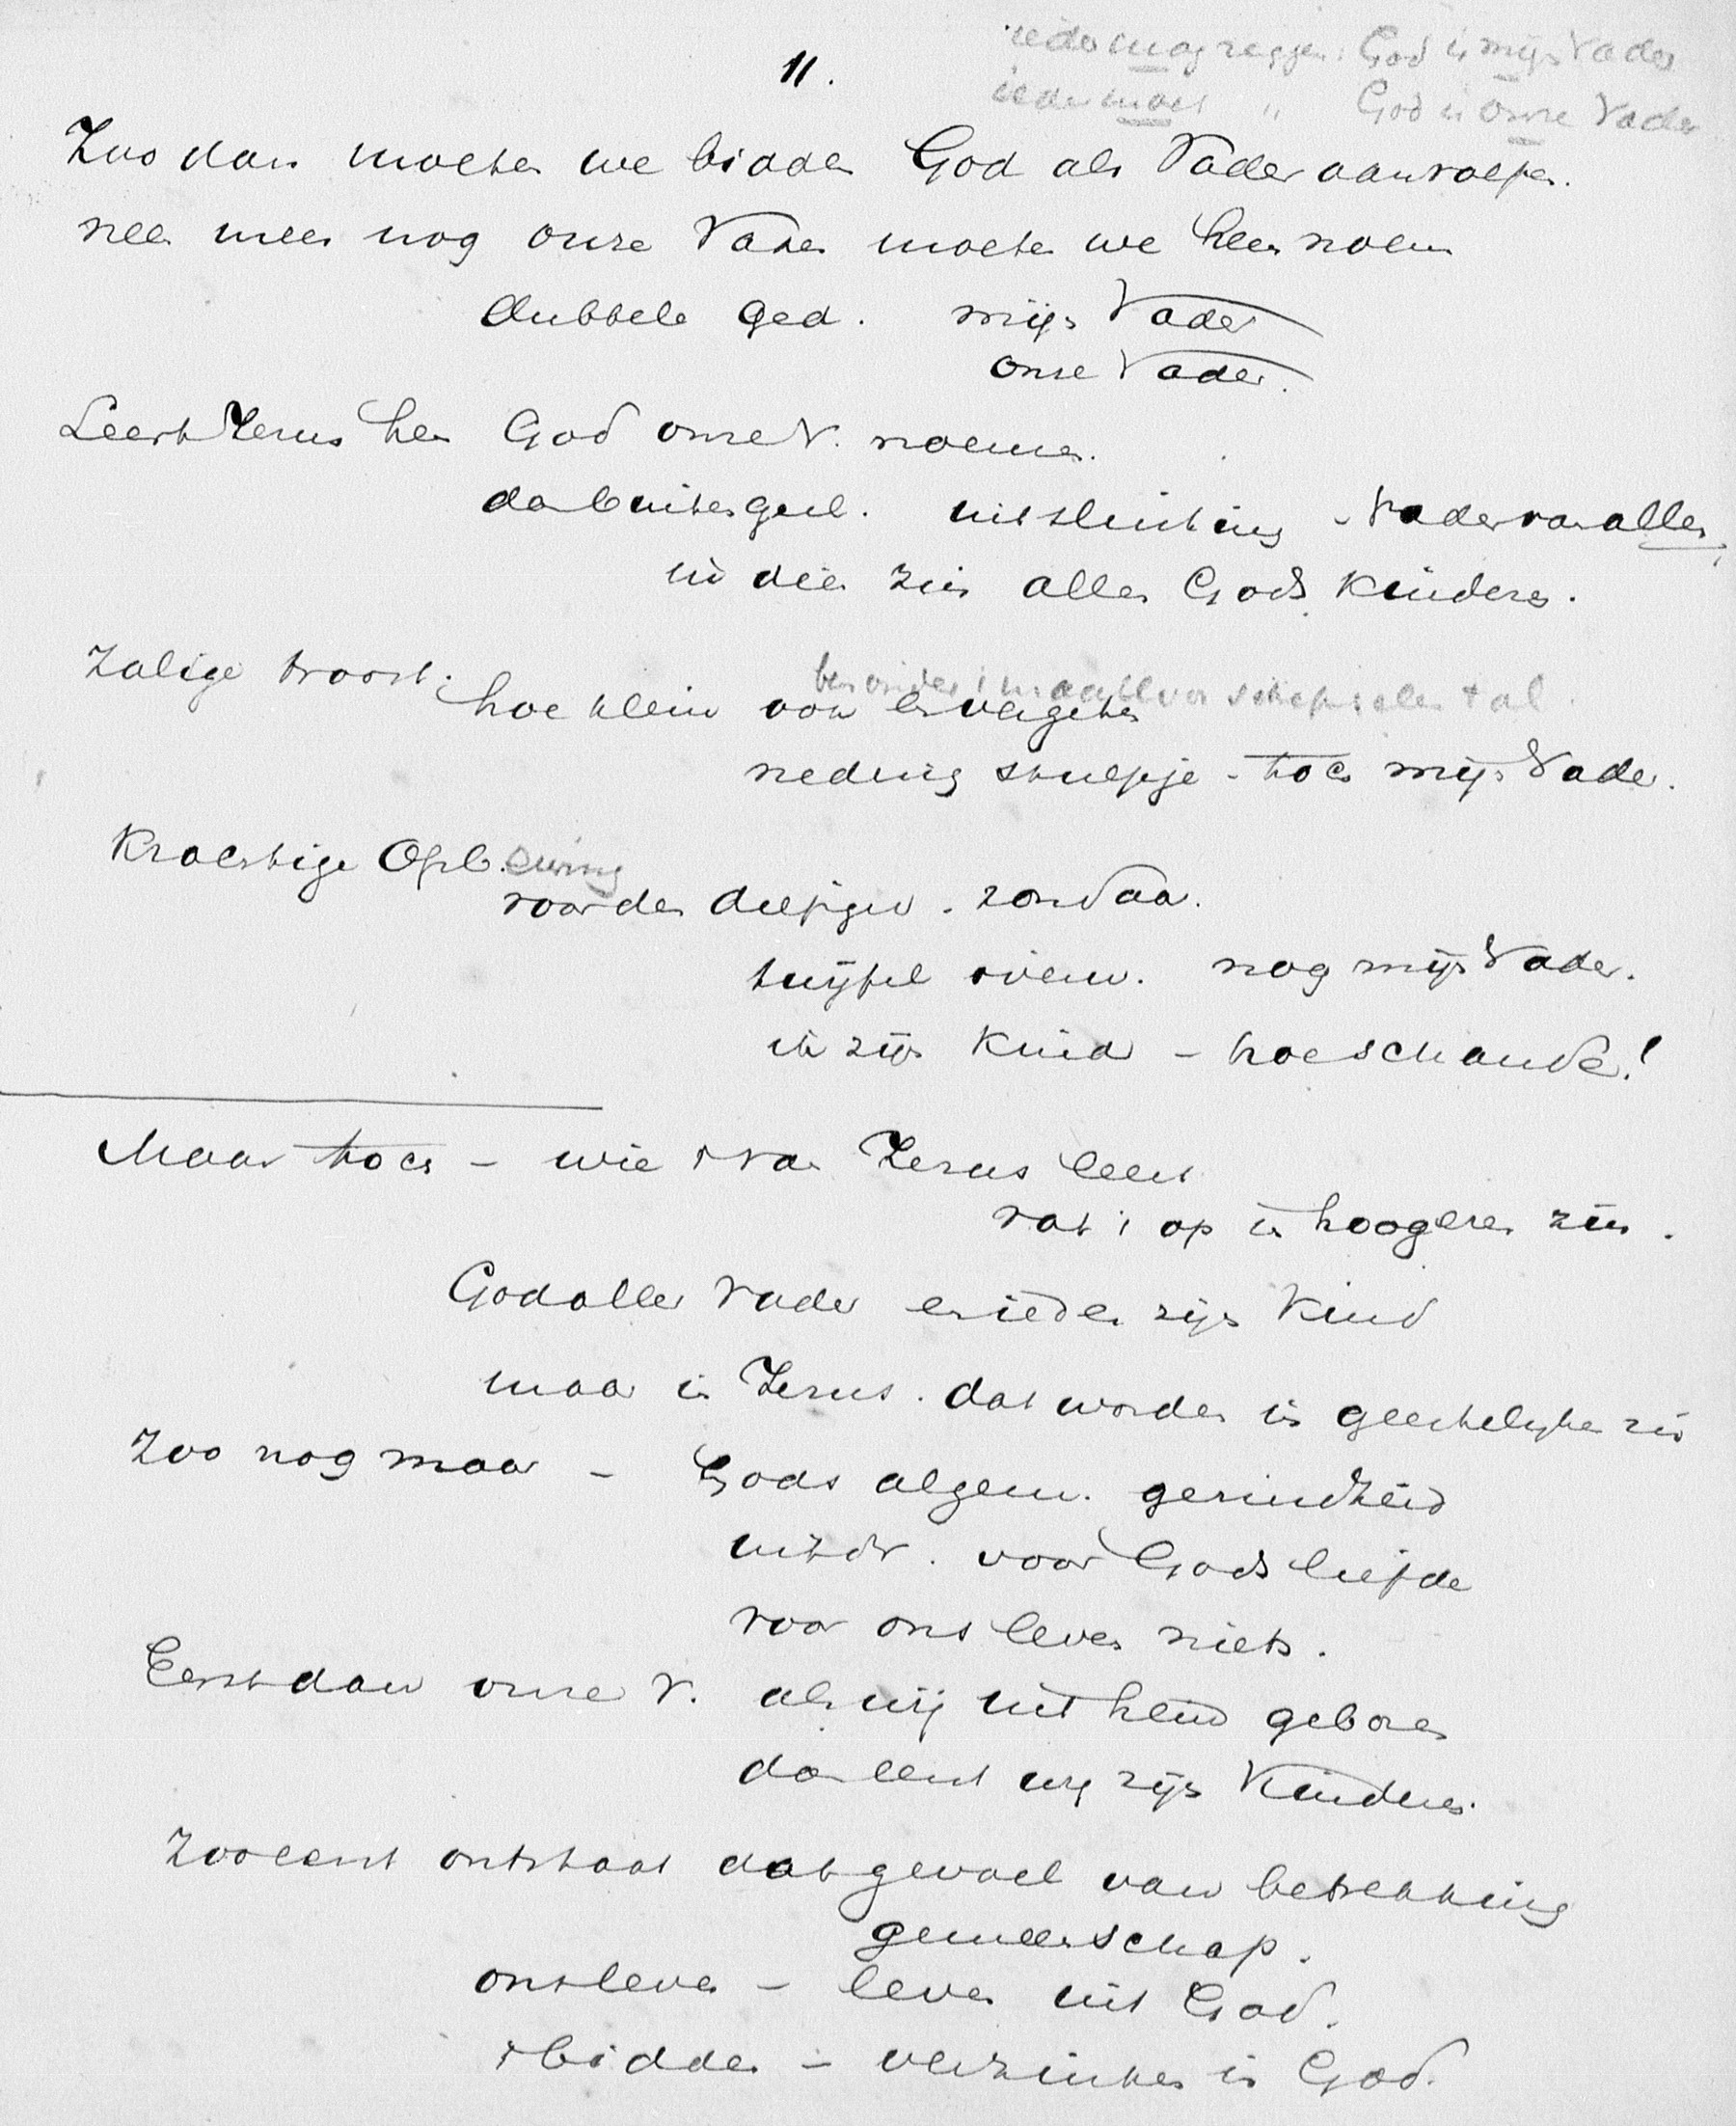 11.
ieder mag zeggen: God is mijn Vader
ieder moet " God is onze Vader
Zoo dan moeten we bidden God als Vader aanroepen.
neen meer nog onze Vader moeten we hem noemen
dubbele ged. mijn Vader
onze Vader.
Leert Jezus hen God onze V. noemen.
dan buitengesl. uitsluiting - Vader van allen
in dien zin allen Gods kinderen.
Zalige troost.
hoe klein ook en vergeten
nedrig stulpje - toch mijn Vader.
Krachtige Opb.euring
voor den diepgev. zondaar.
twijfel nog mijn Vader.
ik zijn kind - hoe schande!
Maar toch - wie 't van Jezus leert
vat 't op in hoogeren zin.
God aller Vader en ieder zijn kind
maar in Jezus. dat worden in geestelijken zin
Zoo nog maar - Gods algem. gezindheid
uitdr. voor Gods liefde
voor ons leven niets.
Eerst dan onze V. als wij uit hem geboren
dan eerst wij zijn kinderen.
Zoo eerst ontstaat dat gevoel van betrekking
gemeenschap.
ons leven - leven uit God.
't bidden - verzinken in God.